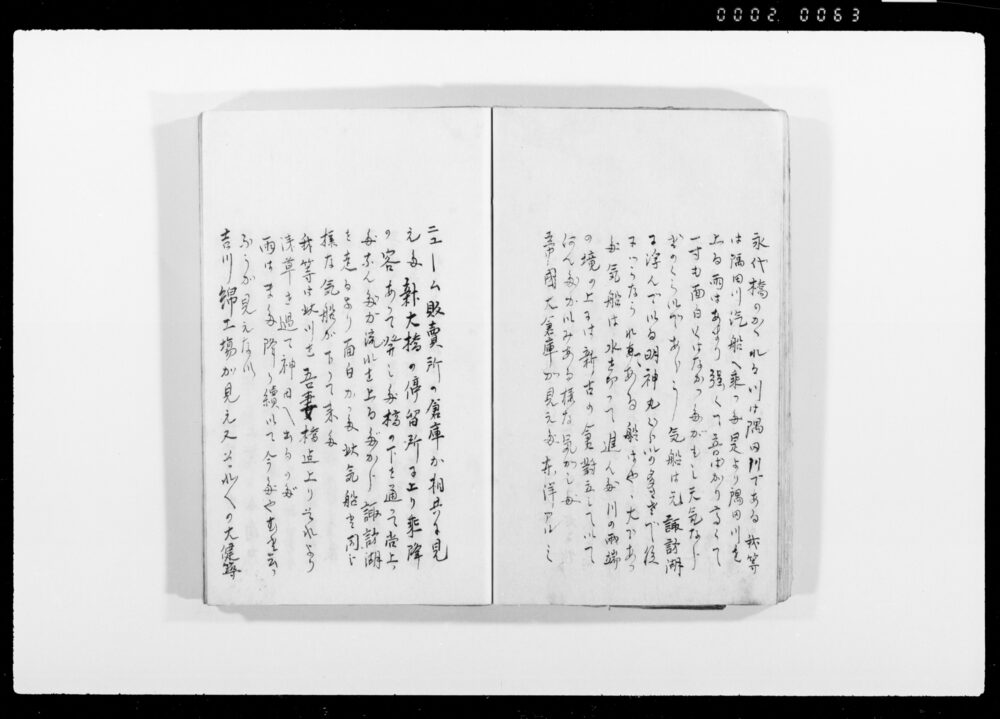 0002.0063
永代橋のかくれる川は隅田川である 我等
は隅田川汽船へ乗つた是より隅田川を
上る雨はあまり強くて音ばかり高くて
一寸も面白くはなかつたがもし天気なら
よからう 気船は元 諏訪湖
に浮んでいる明神丸くらいの
にいうなら れあある 船はやゝ大であつ
た気船は水を切つて進んだ川の両端
の境の上には新古の倉が立していて
何んだかいみある様な気がした
帝國大倉庫が見えた 東洋アルミ
ニューム販賣所の倉庫が相共に見
えた 新大橋の停留所に上り乗降
の客あつて発した橋の下を通つて尚上つ
たなんだか流れを上るだから 諏訪湖
を走るより面白かつた 此気船と同じ
様な気船が下つて来た
我等は此川を吾妻橋迄上りそれより
浅草を過て神田へ出るのだ
雨はまだ降り続いて今だやむを云つ
ふうが見えない
吉川綿工場が見え又それ〲の大建築